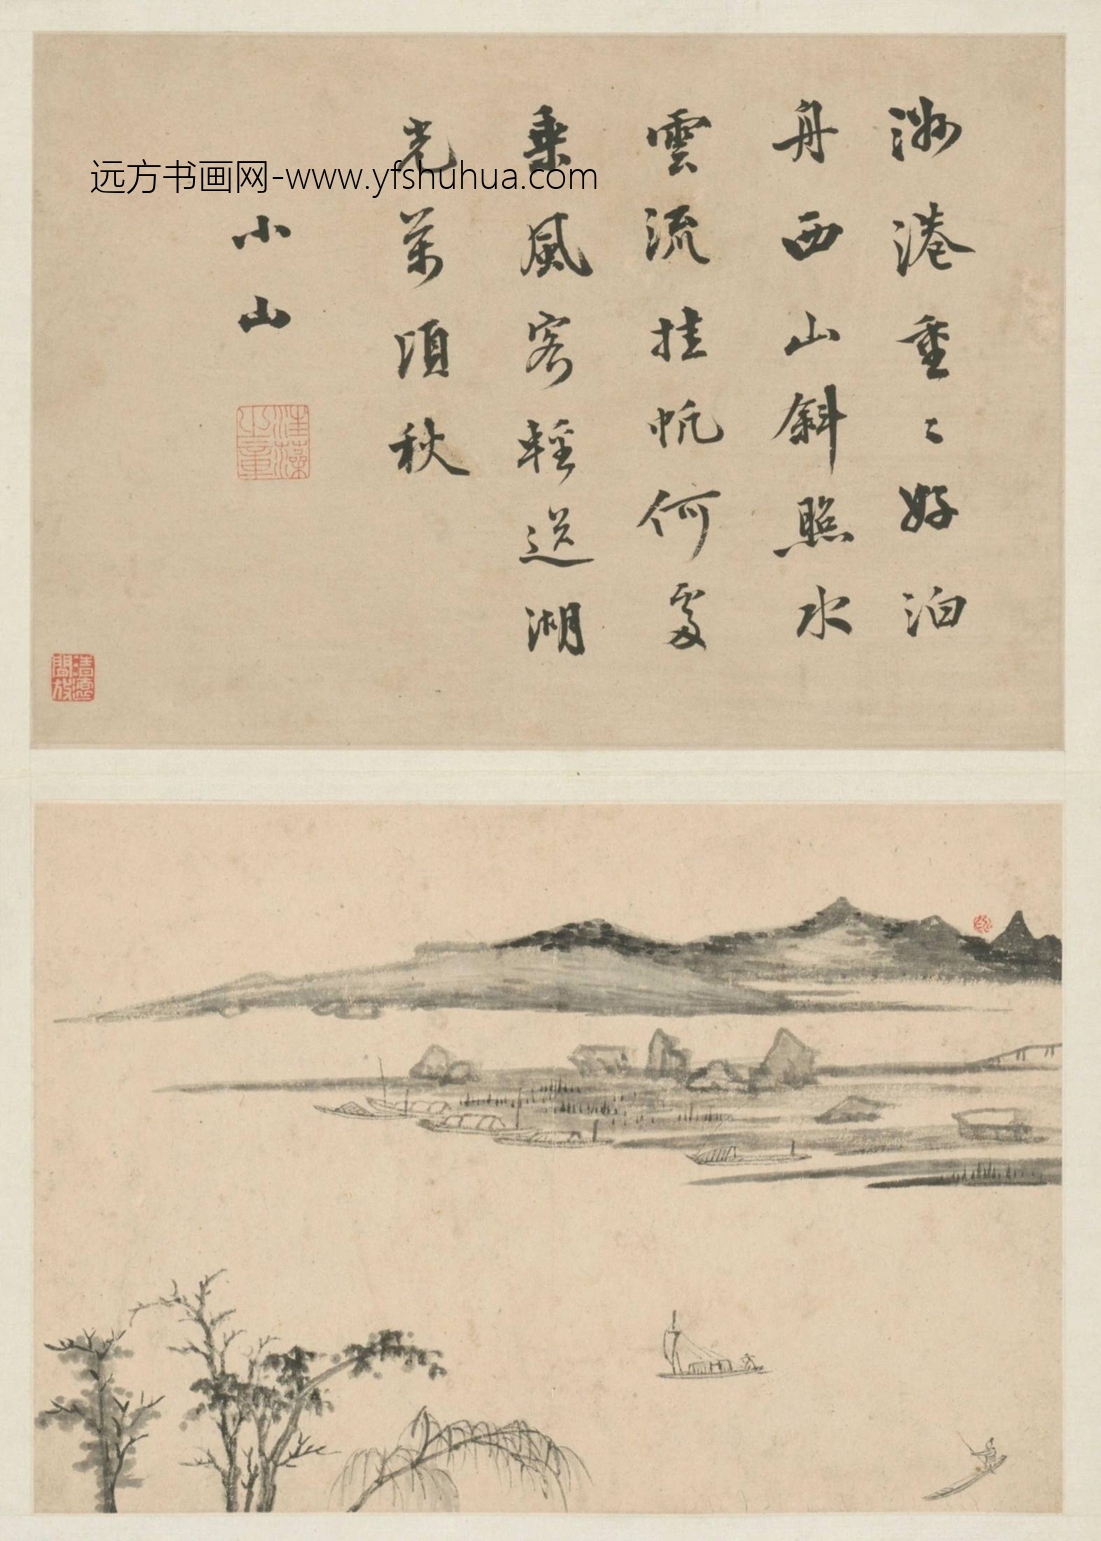 港重〻好泊
舟西山斜照水
雲流挂帆何處
乘風客輕送湖
光萬頃秋
小山
远方书画网-www.yfshuhua.com